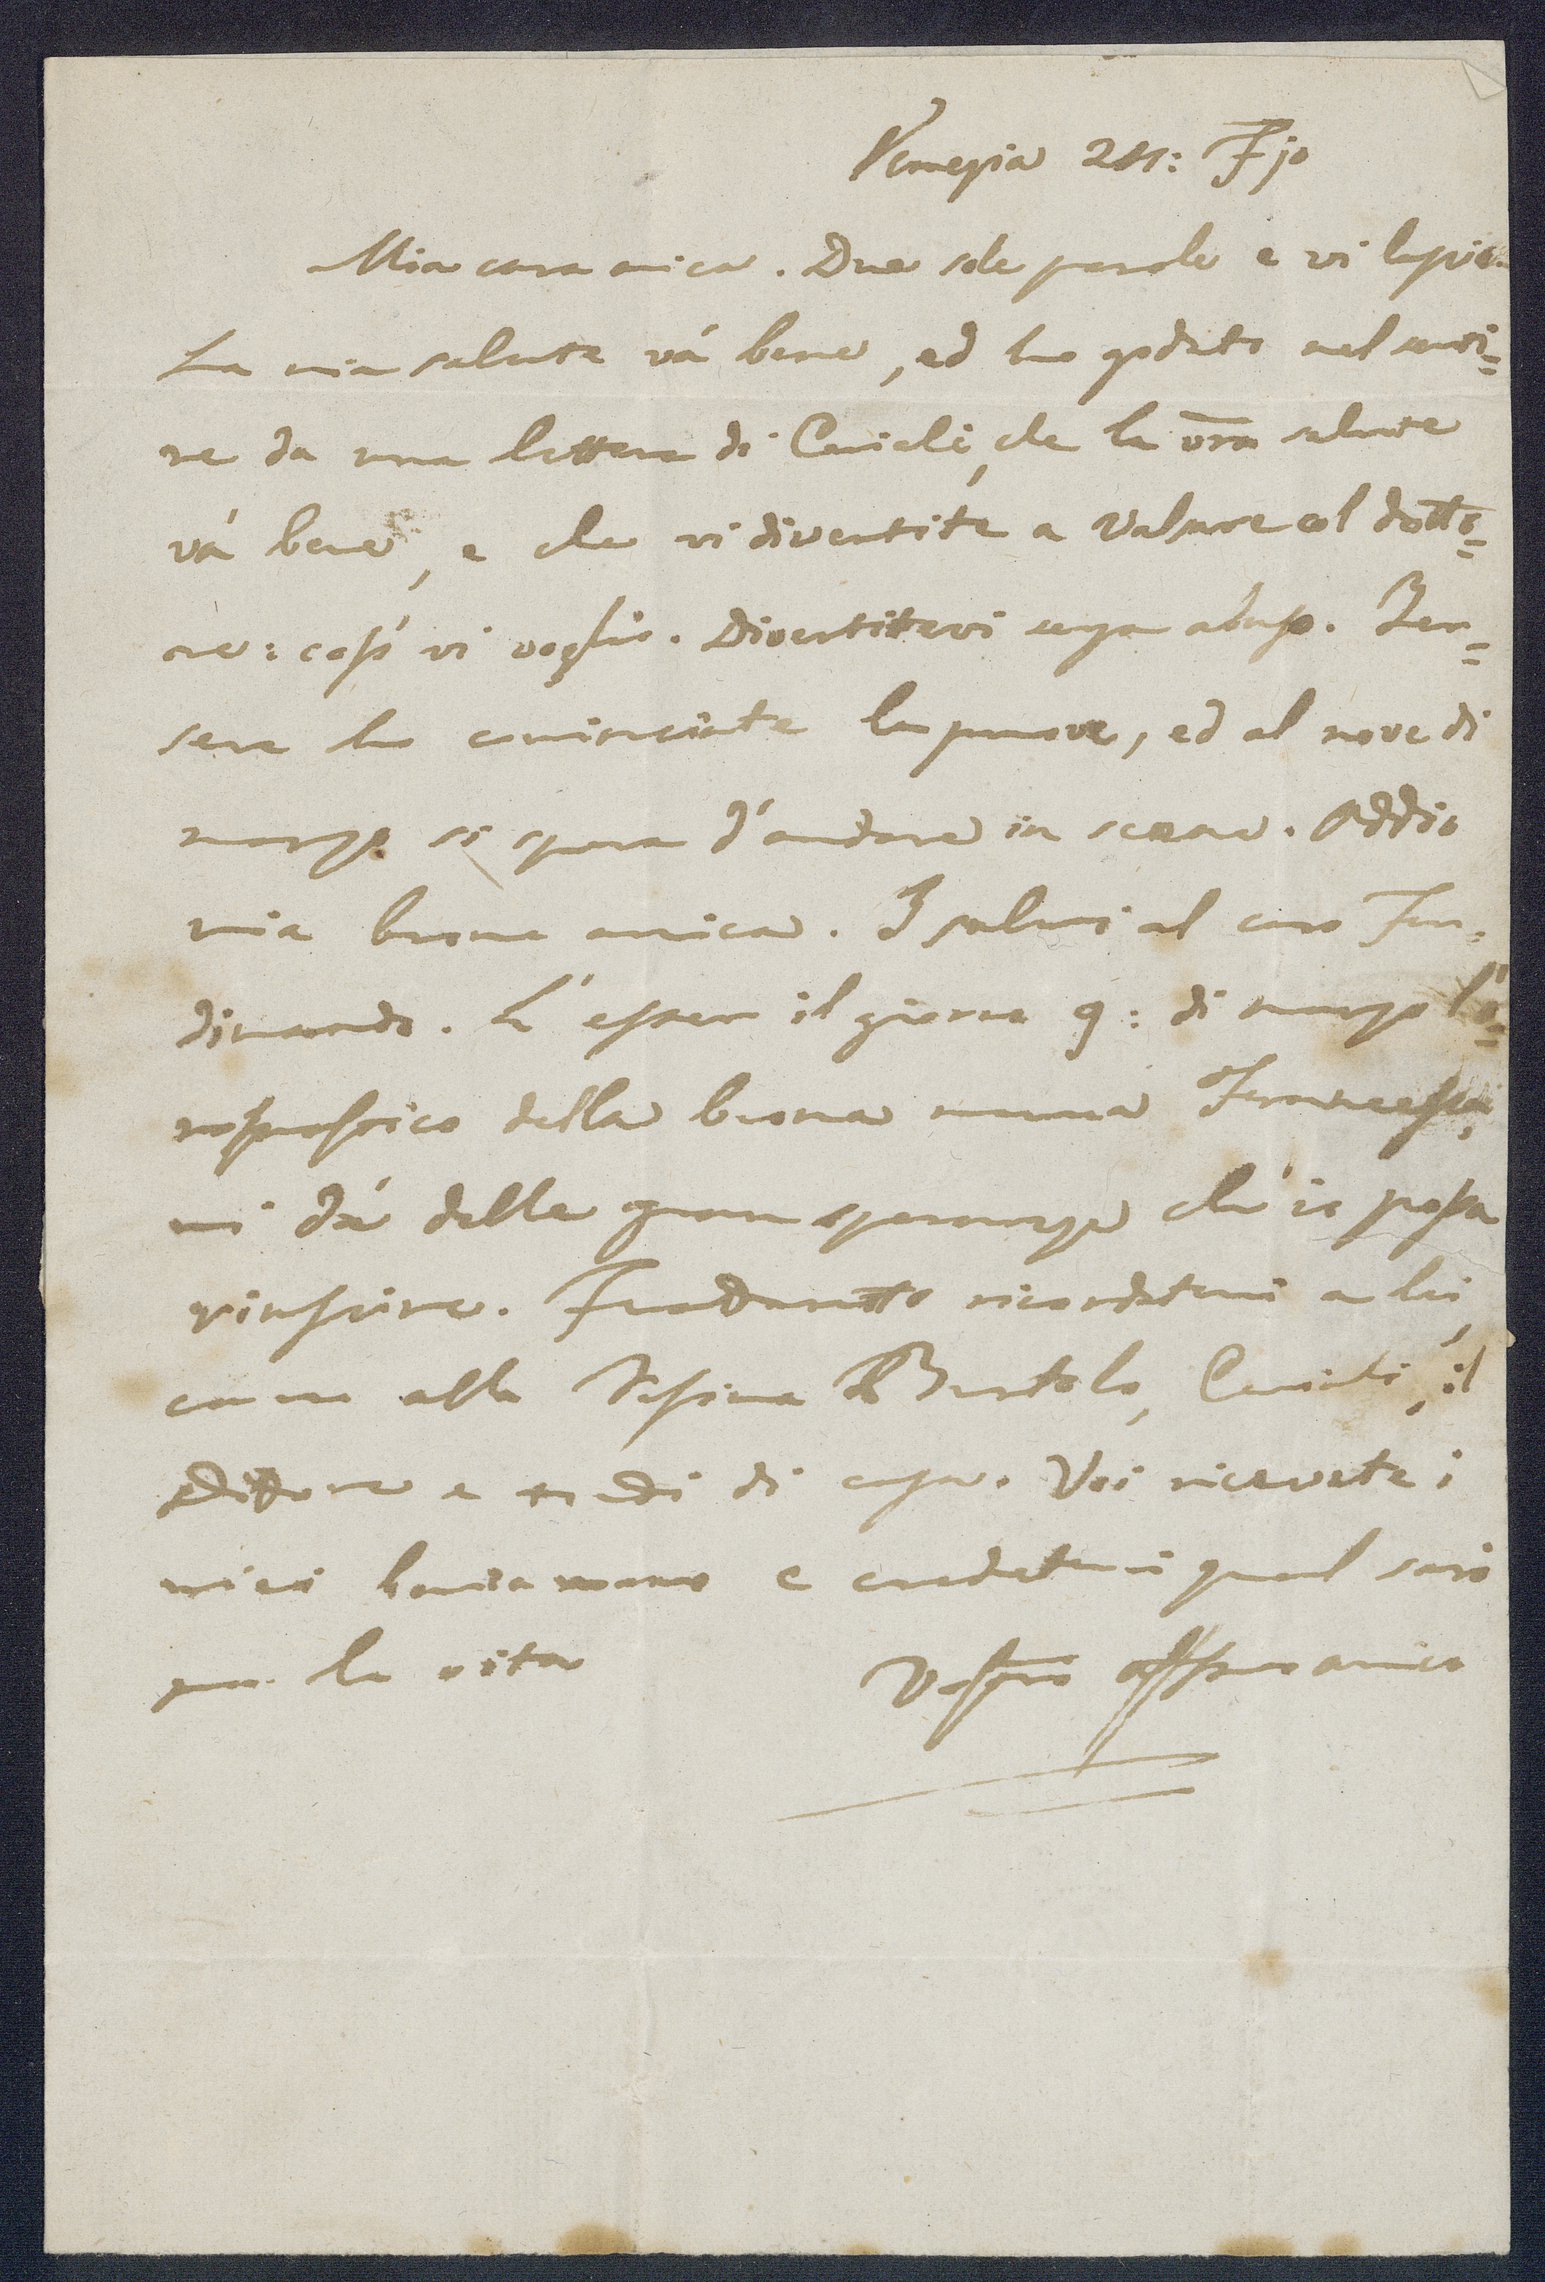 Venezia 24: Fjo
Mia cara amica. Due sole parole e vi lascio.
La mia salute và bene, ed ho goduto nel senti=
re da una lettera di Caviali, che la vra salute
và bene, e che vi divertite a Valsare col dotto=
re: così vi voglio. Divertitevi senza abuso. Jer=
sera ho cominciate le prove, ed al nove di
marzo si spera d'andare in scena. Addio
mia buona amica. I saluti al caro Fer=
dinando. L'esser il giorno 9: di marzo l'o=
nomastico della buona mama Francesca,
mi dà delle gran speranze ch'io possa
riuscire. Frattanto ricordatemi a lei,
come alla Bartolo, Caviali, il
Dottore e tutti di casa. Voi ricevete i
miei baciamano e credetemi qual sarò
per la vita
Vostro affmo amico